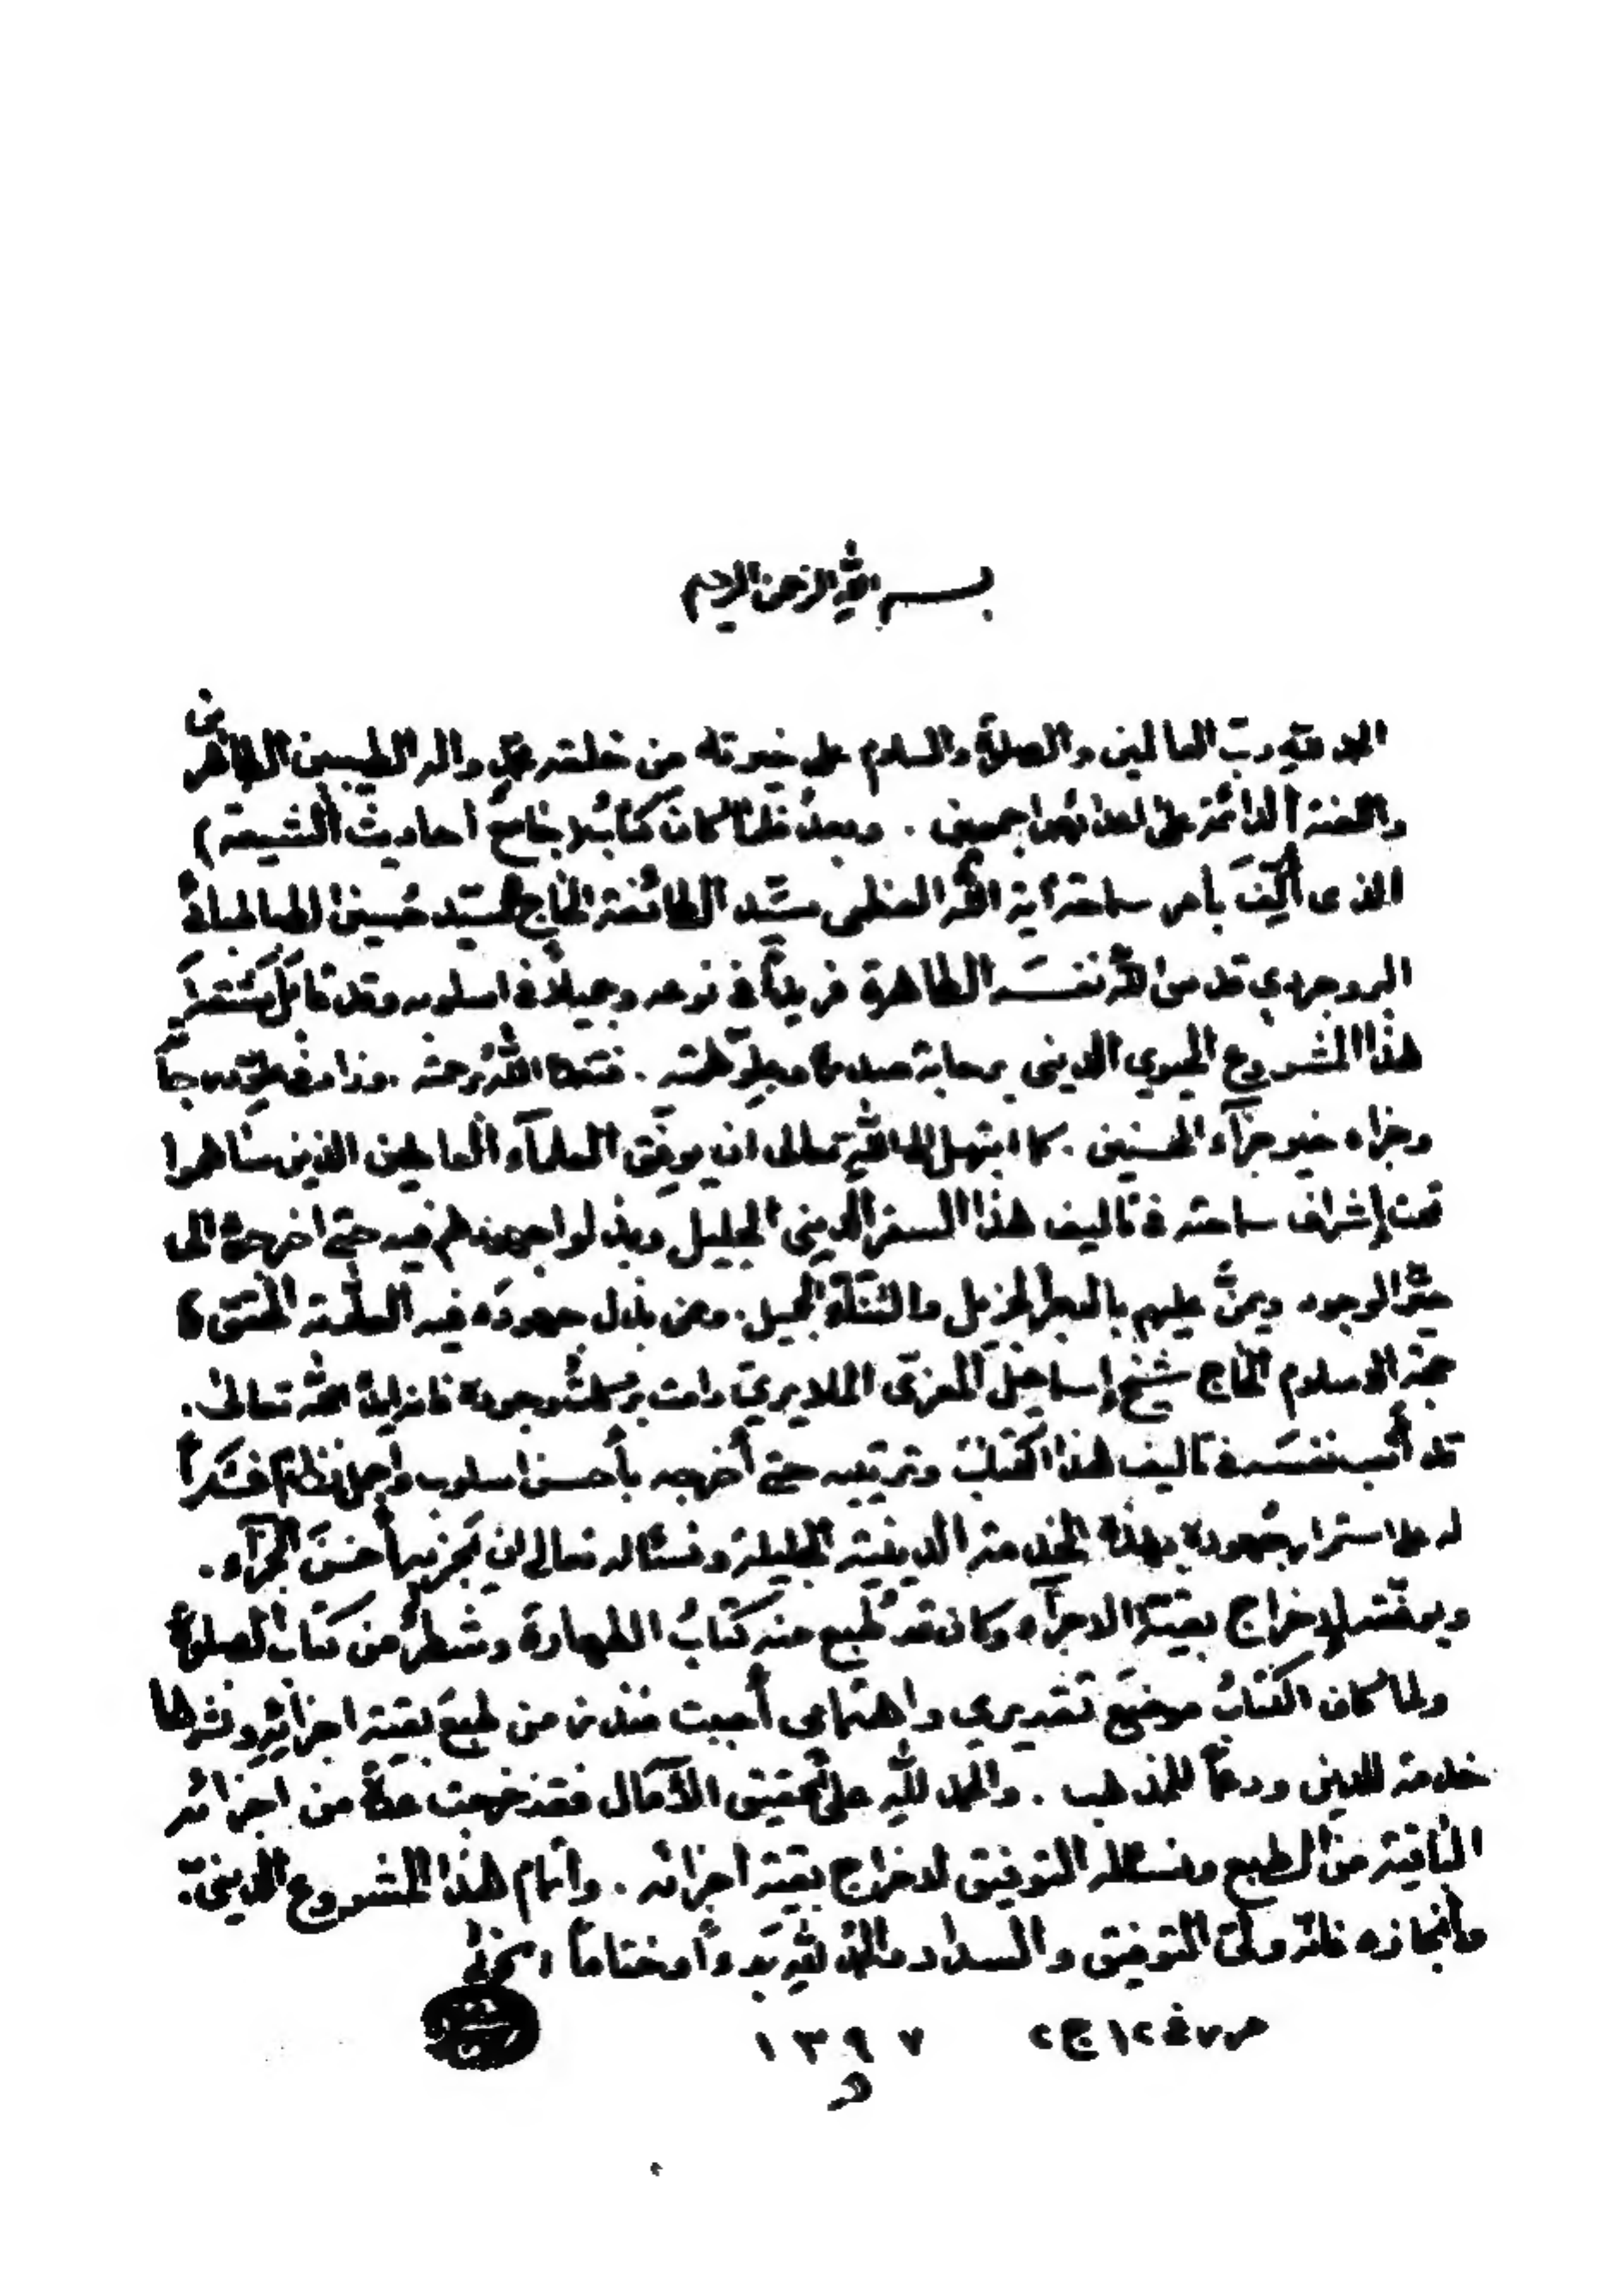 بسم الله الرحمن الرحيم
الحمد لله رب العالمين والصلاة والسلام على خيرته من خلقته محمد واله الطيبين الطاهرين
واللعنة الدائمة على اعدائهم اجمعين . وبعد فلما كان كتاب ( جامع أحاديث الشيعة )
الذى أُلِّفَ بأمر سماحة آية الله العظمى سيّد الطائفة الحاج السيّد حُسين الطباطبائى
البروجردي قدس الله نفسَه الطاهرة فريداً في نوعه وجميلاً في اسلوبه وقد قابل
هذا المشروع الحيوي الديني برحابة صدره وعلوّ همّته . فتغمده الله برحمته . وزاد في علوّ درجاته
وجزاه خير جزآء المحسنين . كما ابتهل الى الله تعالى ان يوفّق العلمآء العاملين الذين ساهموا
تحت إشراف سماحته في تأليف هذا السفر الديني الجليل وبذلوا جهودهم فيه حتى اخرجوه الى
حيّز الوجود ويمنَّ عليهم بالاجر الجزيل والثنآء الجميل . وممن بذل جهوده فيه العلّامة المتقى
حجة الاسلام الحاج شيخ إسماعيل المعزّى الملايري دامت بركات وجوده فانه أيده الله تعالى .
قد أتعب نفسَه في تأليف هذا الكتاب وترتيبه حتى أخرجه بأحسن اسلوب وأجمل نظام فشكراً
له على استمرار جُهوده بهذه الخدمة الدينيّة الجليلة ونسأله تعالى ان يجزيه أحسَنَ الجزآء .
ويوفقه لإخراج بقيّة الاجزآء وكان قد طُبع منه كتابُ الطهارة وشطرٌ من كتاب الصلوة
ولما كان الكتابُ موضعَ تقديري واهتمامى أحببت منذ زمن طبعَ بقيّة اجزائه ونشرها
خدمة للدين ودعماً للمذهب . والحمد للهِ على تحقيق الآمال فقد خرجت عدةٌ من اجزائه
الباقية من الطبع ونسأله التوفيق لاخراج بقيّة اجزائه . واتمام هذا المشروع الديني .
وانجازه فانّه ولىّ التوفيق والسداد والحمد لله بَدءاً وختاماً ،
١٢ ج ٢ ١٣٩٧